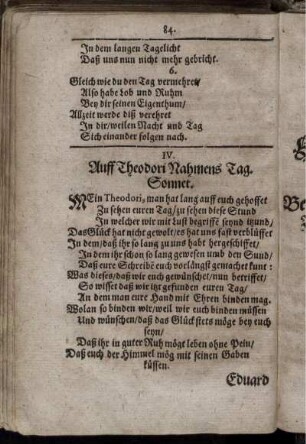 84.
In dem langen Tagelicht
Daß uns nun nicht mehr gebricht.
6.
Gleich wie du den Tag vermehret/
Also habe Lob und Ruhm
Bey dir seinen Eigenthum/
Allzeit werde diß verehret
In dir/weilen Nacht und Tag
Sich einander folgen nach.
IV.
Auff Theodori Nahmens Tag.
Sonnet.
MEin Theodori, man hat lang auff euch gehoffet
Zu sehen euren Tag/zu sehen diese Stund
In welcher wir mit Lust begriffẽ seynd itzund/
Das Glück hat nicht gewolt/es hat uns fast verblüffet
In dem/daß ihr so lang zu uns habt hergeschiffet/
In dem ihr schon so lang gewesen und den Sund/
Daß eure Schreibẽ euch vorlängst gemachet kunt:
Was dieses/daß wir euch gewünschet/nun betriffet/
So wisset daß wir itzt gefunden euren Tag/
An dem man eure Hand mit Ehren binden mag.
Wolan so binden wir/weil wir euch binden müssen
Und wünschen/daß das Glück stets möge bey euch
seyn/
Daß ihr in guter Ruh mögt leben ohne Pein/
Daß euch der Himmel mög mit seinen Gaden
küssen.
Eduard